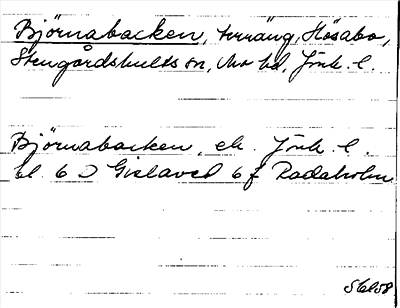 Björnabacken, terräng, Hösabo,
Stengårdshults sn, Mo hd, Jönk. l.
Björnabacken, ek. Jönk. l.
bl. 6 D Gislaved 6 f Radaholm
S6658